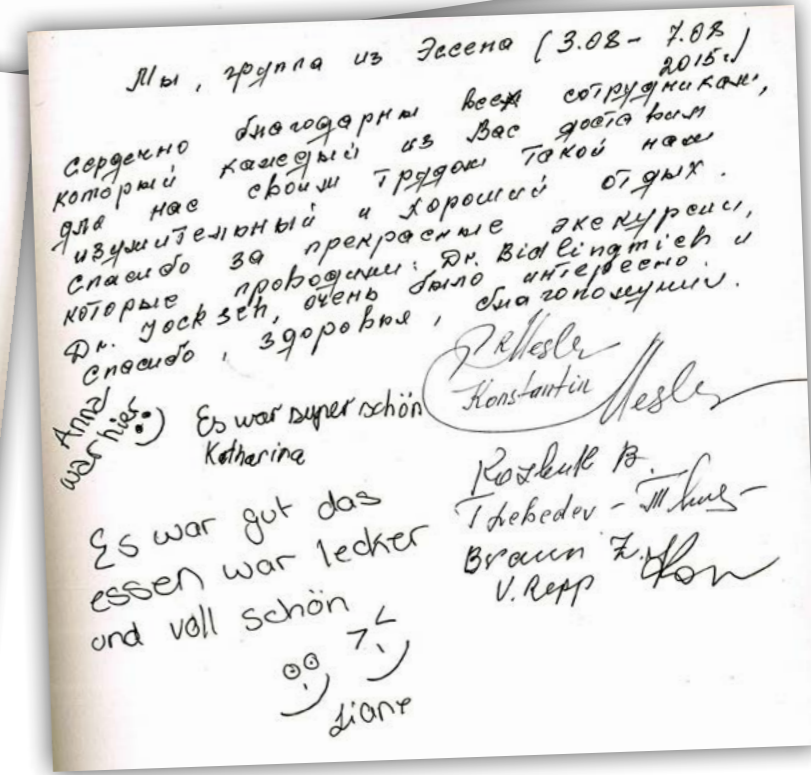 Мы, группа из Эссена (3.08 - 7.08
2015г.)
сердечно благодарны всем сотрудникам,
который каждый из Вас доставил
для нас своим трудом такой нам
изумительный и хороший отдых.
Спасибо за прекрасные экскурсии,
которые проводили: Dr. Bidlingmich и
Dr. Jocksch, очень было интересно.
Спасибо, здоровья, благополучия.
Anna
war hier
Es war super schön
Katharina
Konstantin Mesler
Es war gut das
essen war lecker
und voll schön
Liane
B.
Braun
V. Repp